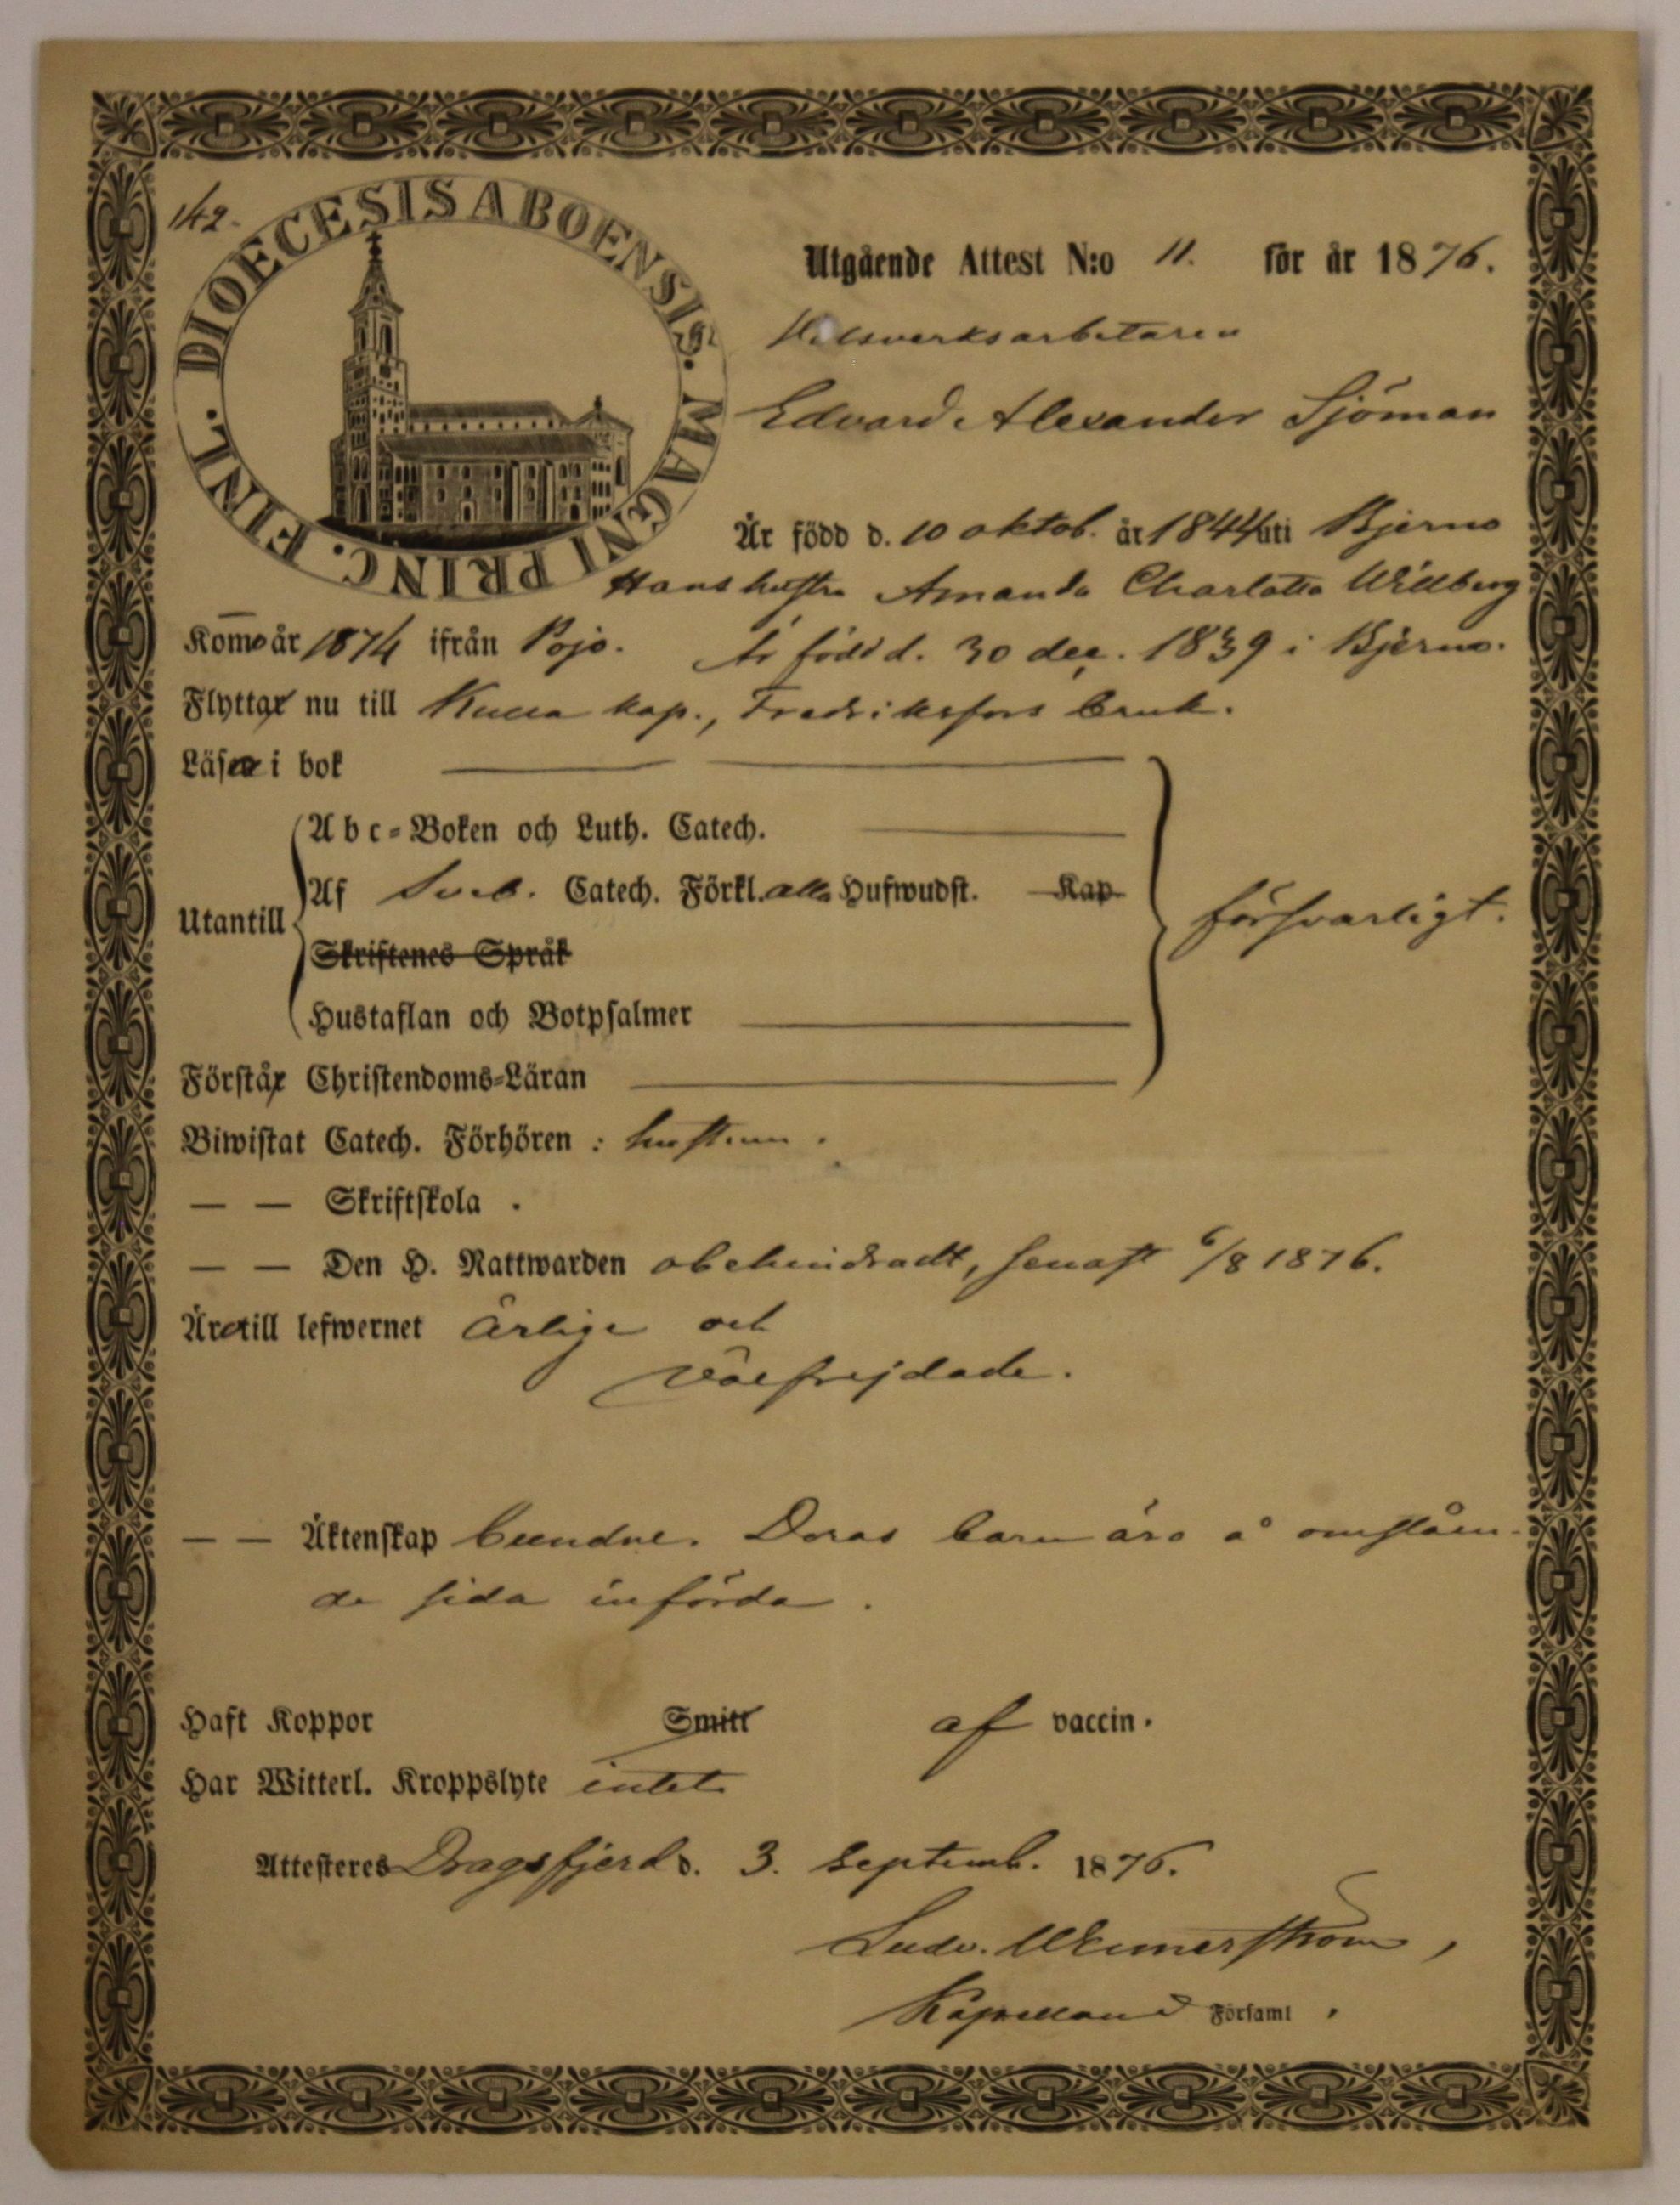 142.
DIOECESIS ABOENSIS. MAGNI PRINC. FINL.
Utgående Attest N:o 11. för år 1876.
Edvard Alexander Sjöman
Är född d. 10 oktob. år 1844 uti Bjerno
Hans hustru Amanda Charlotta Willberg
Komo år 1874 ifrån Pojo. Är född d. 30 dec. 1839 i Bjerno.
Flyttar nu till kap., Fredriksfors bruk.
Läsa i bok
Abc-Boken och Luth. Catech.
Utantill
Af Sveb. Catech. Förkl. alla Hufwudst. Kap
försvarligt.
Skriftenes Språk
Hustaflan och Botpsalmer
Förstår Christendoms-Läran
Biwistat Catech. Förhören : hustrun.
— — Skriftskola .
— — Den H. Nattwarden obehindradt, senast 6/8 1876.
Äro till lefwernet ärlige och
välfrejdade.
— — Äktenskap bundne. Deras barn äro å omståen-
de sida införda.
Haft Koppor Smitt af vaccin.
Har Witterl. Kroppslyte intet
Attesteres Dragsfjerd d. 3. Septemb. 1876.
Ludv. Wennerström,
Kapellan i Församl.